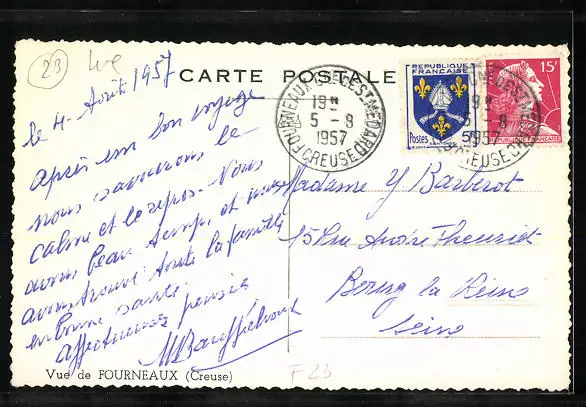 23
CARTE POSTALE
le 4 Août 1957
après un bon voyage
nous savourons le
calme et le repos. Nous
avons beau temps et nous
avons trouvé toute la famille
en bonne santé.
affectueuses pensées
Vue de FOURNEAUX (Creuse)
FOURNEAUX
ST MEDARD
19H
5 - 8
1957
CREUSE
REPUBLIQUE
FRANÇAISE
Postes
15F
REPUBLIQUE FRANÇAISE
5 - 8
1957
CREUSE
Madame Y Barberot
15 Rue André Theuriet
Bourg la Reine
Seine
F 23